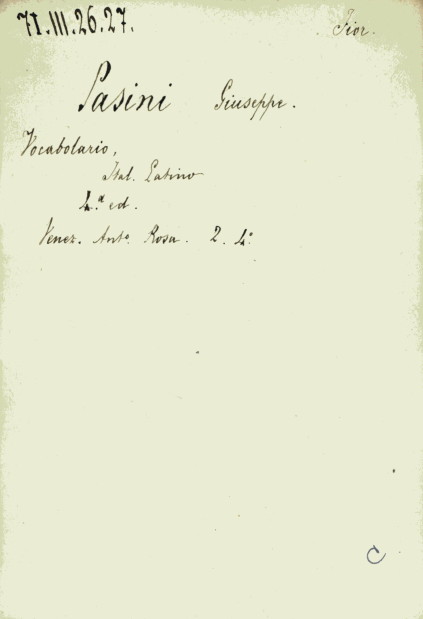 71.III.26.27. Fior.
Pasini Giuseppe.
Vocabolario,
Ital. Latino
4.ª ed.
Venez. Antº Rosa. 2. 4º
C